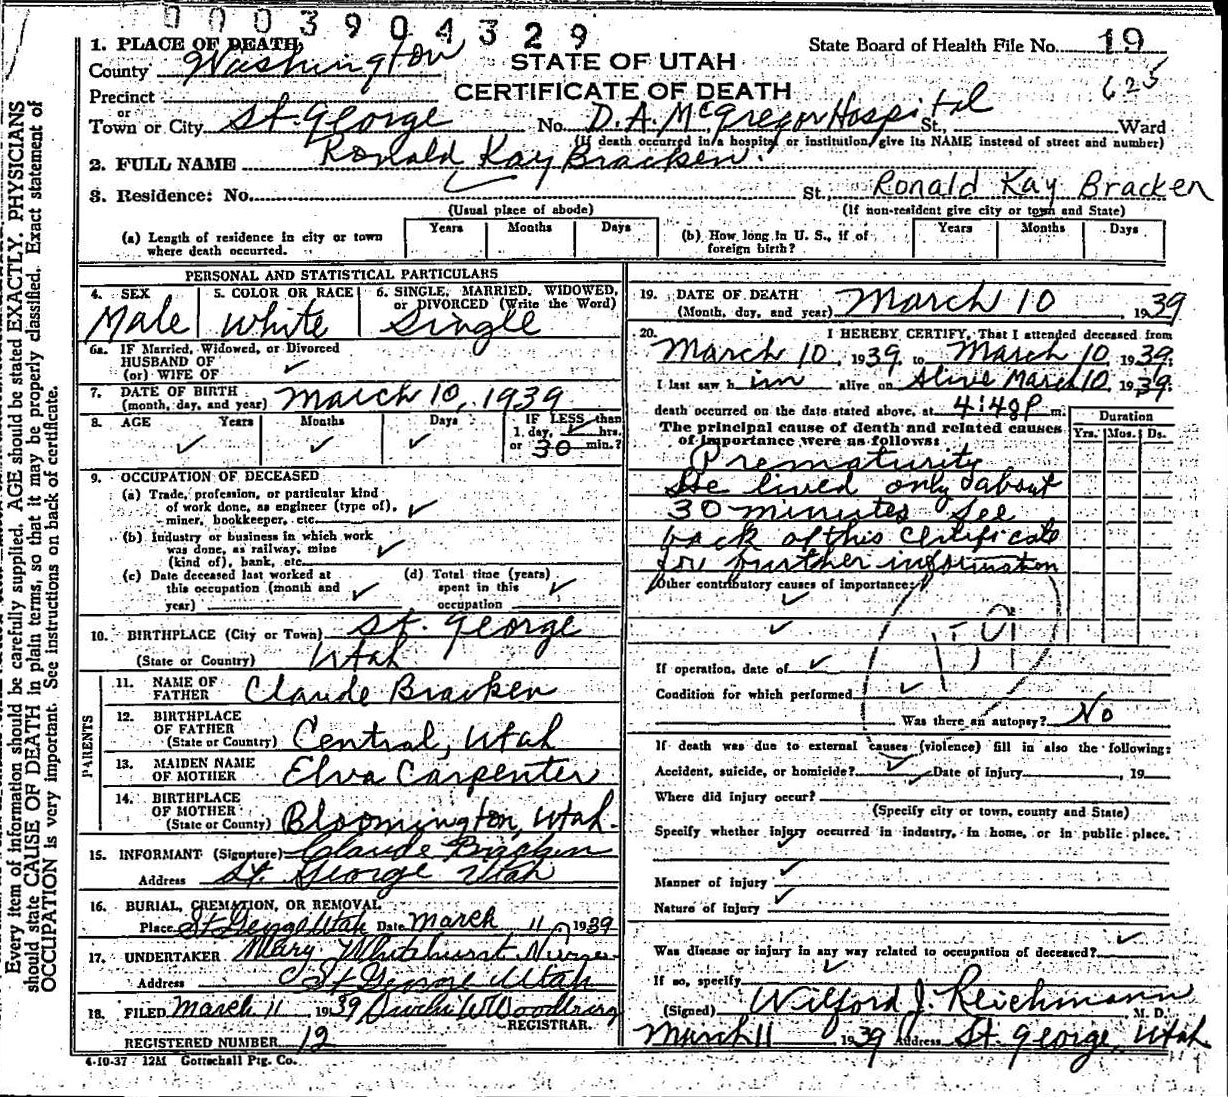 0003904329
1. PLACE OF DEATH
State Board of Health File No. 19
County Washington
STATE OF UTAH
625
Precinct
CERTIFICATE OF DEATH
or
Town or City St. George No. D. A. McGregor Hospital St., Ward
(If death occurred in a hospital or institution give its NAME instead of street and number)
2. FULL NAME Ronald Kay Bracken.
3. Residence: No. St., Ronald Kay Bracken
(Usual place of abode) (If non-resident give city or town and State)
(a) Length of residence in city or town where death occurred. Years Months Days
(b) How long in U. S., if of foreign birth? Years Months Days
PERSONAL AND STATISTICAL PARTICULARS
4. SEX Male
5. COLOR OR RACE White
6. SINGLE, MARRIED, WIDOWED, or DIVORCED (Write the Word) Single
6a. IF Married, Widowed, or Divorced
HUSBAND OF
(or) WIFE OF
7. DATE OF BIRTH
(month, day, and year) March 10, 1939
8. AGE Years Months Days IF LESS than 1 day, hrs. or 30 min.?
9. OCCUPATION OF DECEASED
(a) Trade, profession, or particular kind
of work done, as engineer (type of),
miner, bookkeeper, etc.
(b) Industry or business in which work
was done, as railway, mine
(kind of), bank, etc.
(c) Date deceased last worked at
this occupation (month and
year)
(d) Total time (years)
spent in this
occupation
10. BIRTHPLACE (City or Town) St. George
(State or Country) Utah
PARENTS
11. NAME OF FATHER Claude Bracken
12. BIRTHPLACE OF FATHER
(State or Country) Central, Utah
13. MAIDEN NAME OF MOTHER Elva Carpenter
14. BIRTHPLACE OF MOTHER
(State or County) Bloomington, Utah.
15. INFORMANT (Signature) Claude Bracken
Address St. George Utah
16. BURIAL, CREMATION, OR REMOVAL
Place St George Utah Date March 11, 1939
17. UNDERTAKER Mary Whitehurst Nurse
Address St George Utah
18. FILED March 11, 1939 Woodbury
REGISTRAR.
REGISTERED NUMBER 12
4-10-37 12M Gottschall Ptg. Co.
19. DATE OF DEATH
(Month, day, and year) March 10 1939
20. I HEREBY CERTIFY, That I attended deceased from
March 10, 1939, to March 10, 1939;
I last saw him alive on Alive March 10, 1939;
death occurred on the date stated above, at 4:48P m.
The principal cause of death and related causes
of importance were as follows:
Duration
Yrs. Mos. Ds.
Prematurity
He lived only about
30 minutes See
back of this Certificate
for further information
Other contributory causes of importance:
159
If operation, date of
Condition for which performed
Was there an autopsy? No
If death was due to external causes (violence) fill in also the following:
Accident, suicide, or homicide? Date of injury , 19
Where did injury occur?
(Specify city or town, county and State)
Specify whether injury occurred in industry, in home, or in public place.
Manner of injury
Nature of injury
Was disease or injury in any way related to occupation of deceased?
If so, specify
(Signed) Wilford J. Reichmann M. D.
March 11 1939 Address St. George, Utah
Every item of information should be carefully supplied. AGE should be stated EXACTLY. PHYSICIANS
should state CAUSE OF DEATH in plain terms, so that it may be properly classified. Exact statement of
OCCUPATION is very important. See instructions on back of certificate.